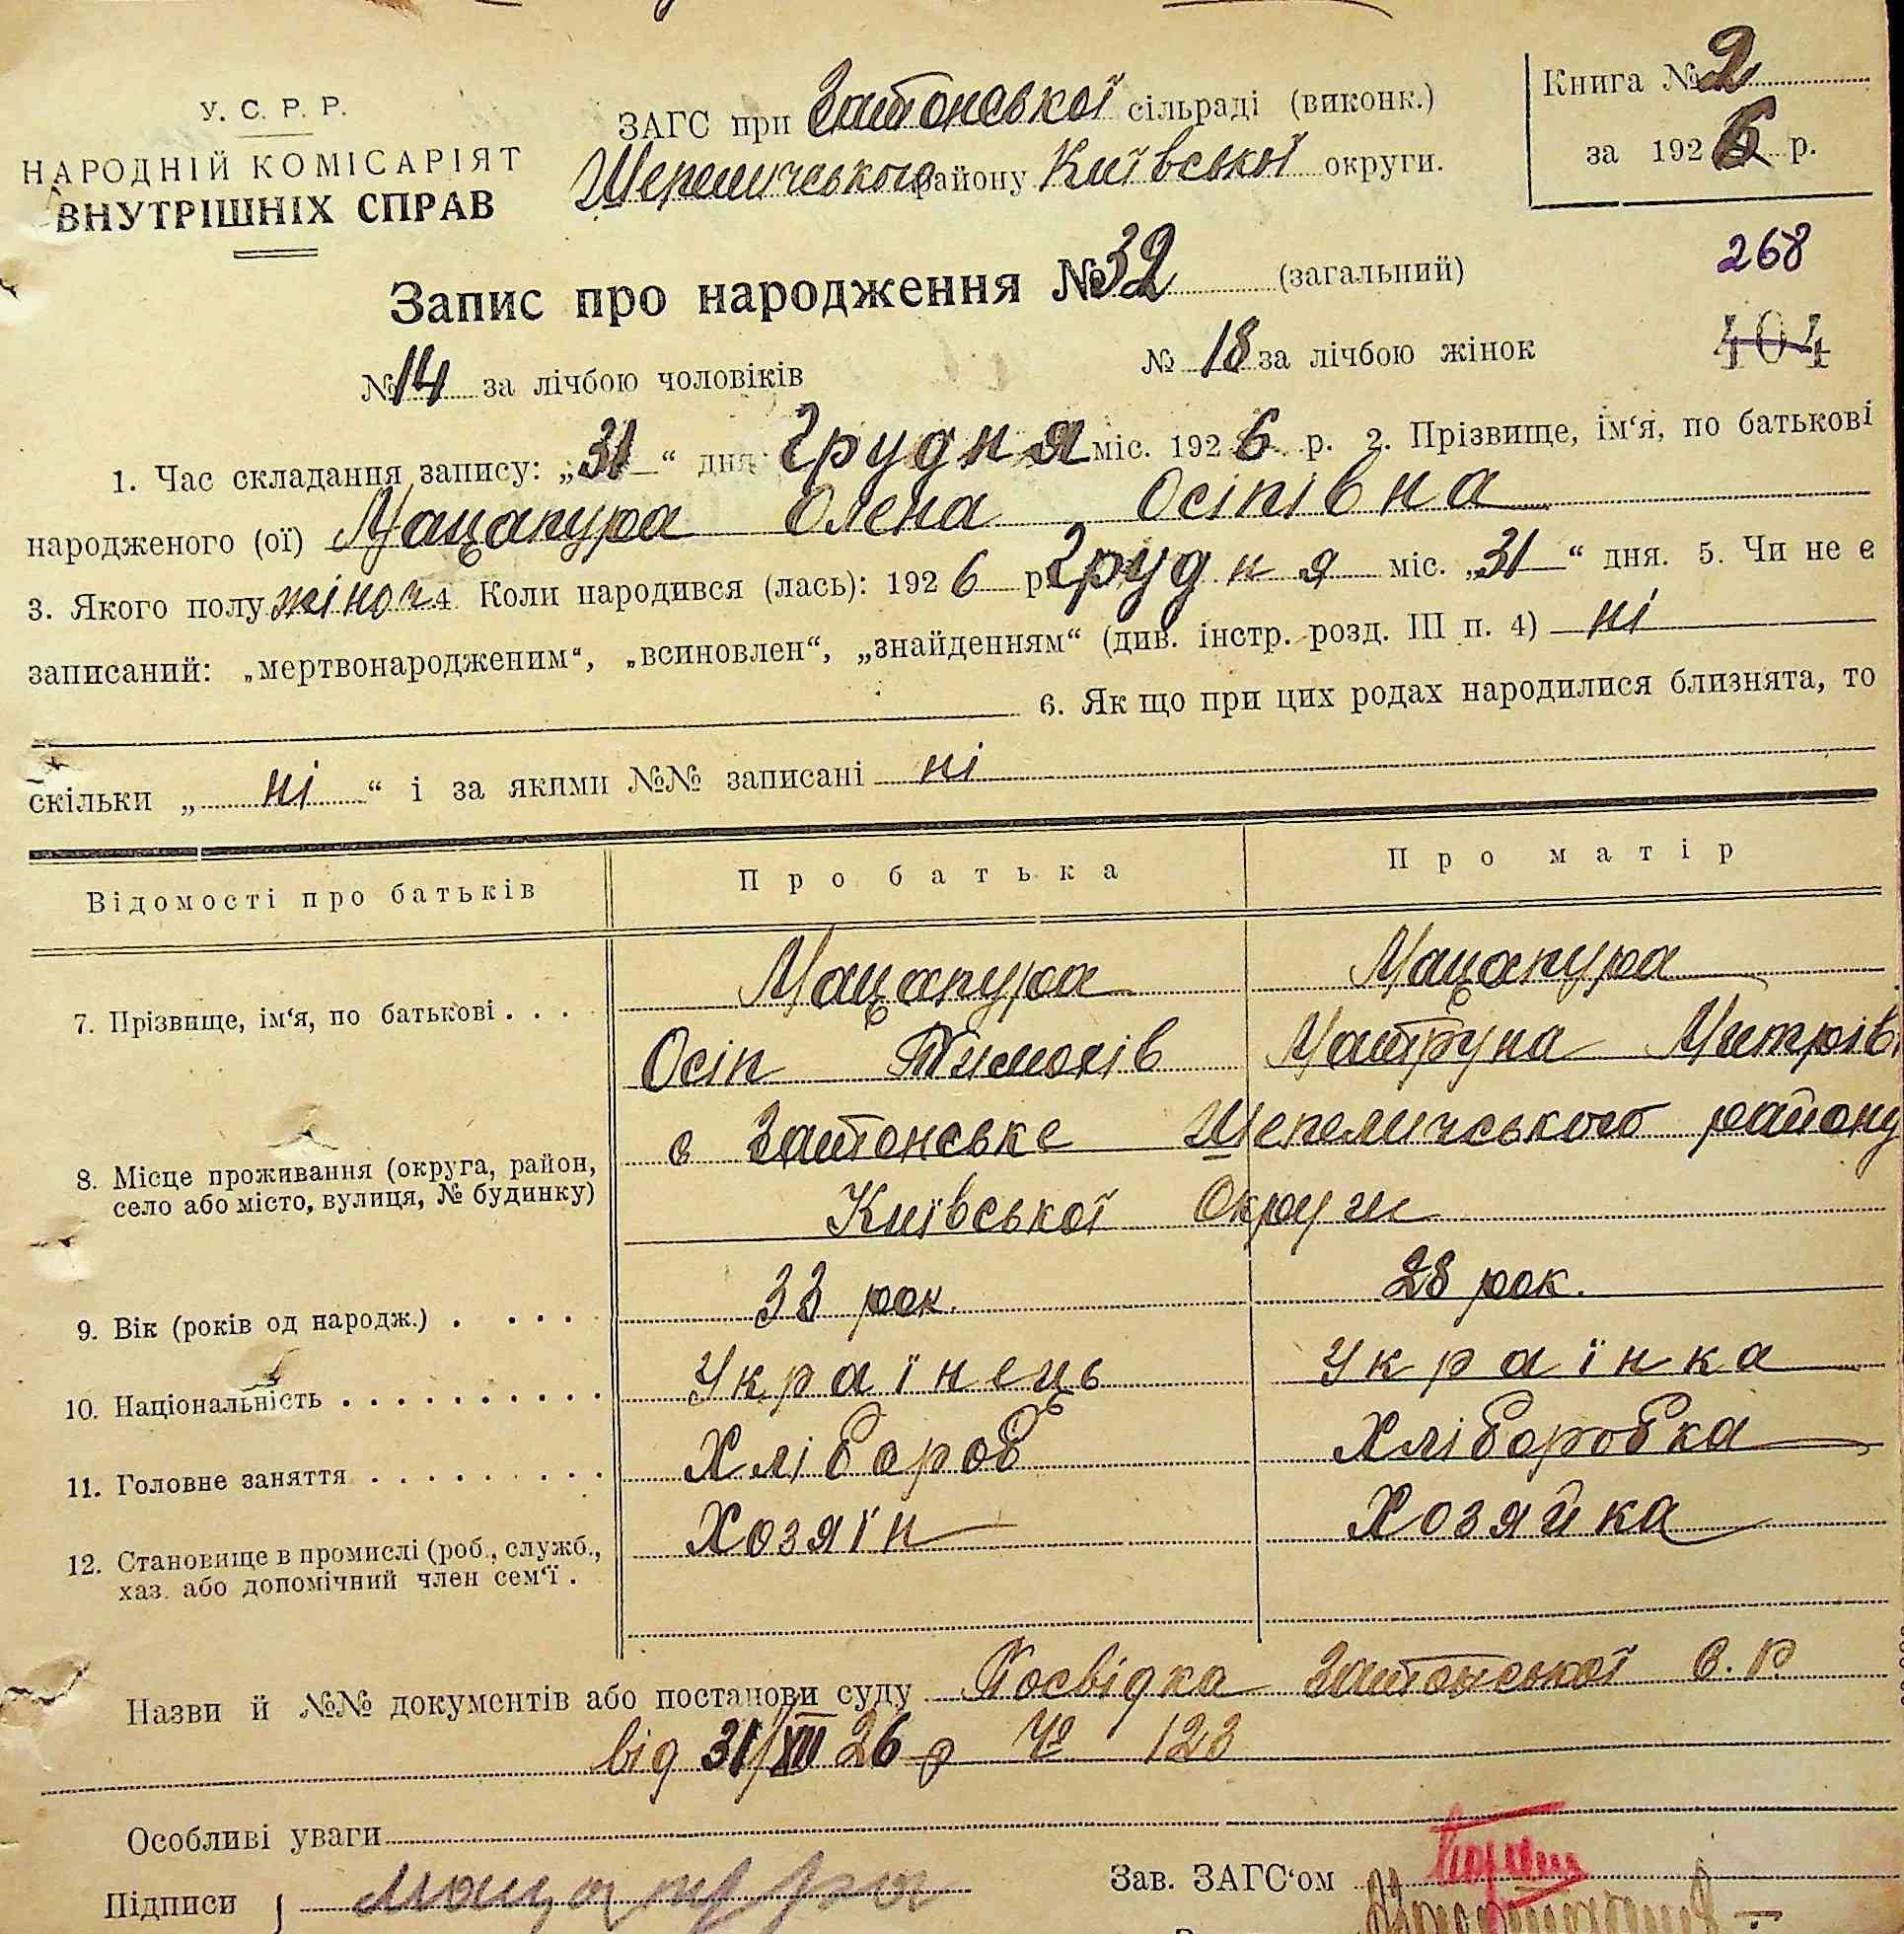 У. С. Р. Р.
НАРОДНІЙ КОМІСАРІЯТ
ВНУТРІШНІХ СПРАВ
ЗАГС при Затонської сільраді (виконк.)
Шепеличського району Київської округи.
Книга № 2
за 1926 р.
268
404
Запис про народження № 32 (загальний)
№ 14 за лічбою чоловіків № 18 за лічбою жінок
1. Час складання запису: „31“ дня Грудня міс. 1926 р. 2. Прізвище, ім‘я, по батькові
народженого (ої) Мацапура Олена Осіпівна
3. Якого полу жіноч. 4 Коли народився (лась): 1926 р. Грудня міс. „31“ дня. 5. Чи не є
записаний: „мертвонародженим“, „всиновлен“, „знайденням“ (див. інстр. розд. III п. 4) ні
6. Як що при цих родах народилися близнята, то
скільки „ні“ і за якими №№ записані ні
Відомості про батьків Про батька Про матір
7. Прізвище, ім‘я, по батькові . . . .
Мацапура Мацапура
Осіп Мотруна Митрів.
8. Місце проживання (округа, район,
село або місто, вулиця, № будинку)
с Затонське Шепеличського району
Київської Округи
9. Вік (років од народж.) . . . . 33 рок. 28 рок.
10. Національність . . . . . . . . . . Українець Українка
11. Головне заняття . . . . . . . . . Хлібороб Хліборобка
12. Становище в промислі (роб., служб.,
хаз. або допомічний член сем‘ї .
Хозяїн Хозяйка
Назви й №№ документів або постанови суду Посвідка Затонської с. р.
від 31/XII 26 р № 123
Особливі уваги
Підписи Мацапура
Зав. ЗАГС‘ом